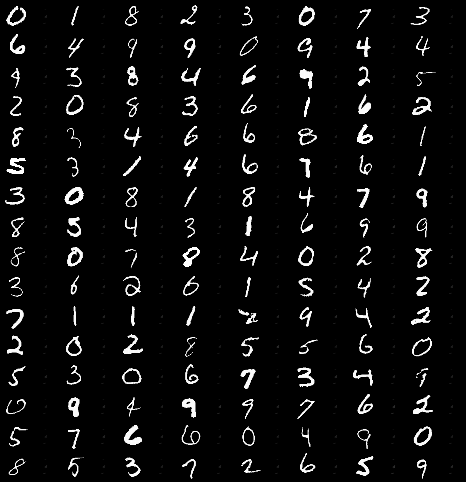 0 1 8 2 3 0 7 3
6 4 9 9 0 9 4 4
4 3 8 4 6 9 2 5
2 0 8 3 6 1 6 2
8 3 4 6 6 8 6 1
5 3 1 4 6 7 6 1
3 0 8 1 8 4 7 9
8 5 4 3 1 6 9 9
8 0 7 8 4 0 2 8
3 6 2 6 1 5 4 2
7 1 1 1 2 9 4 2
2 0 2 8 5 5 6 0
5 3 0 6 7 3 4 9
0 9 4 9 9 7 6 2
5 7 6 6 0 4 9 0
8 5 3 7 2 6 5 9